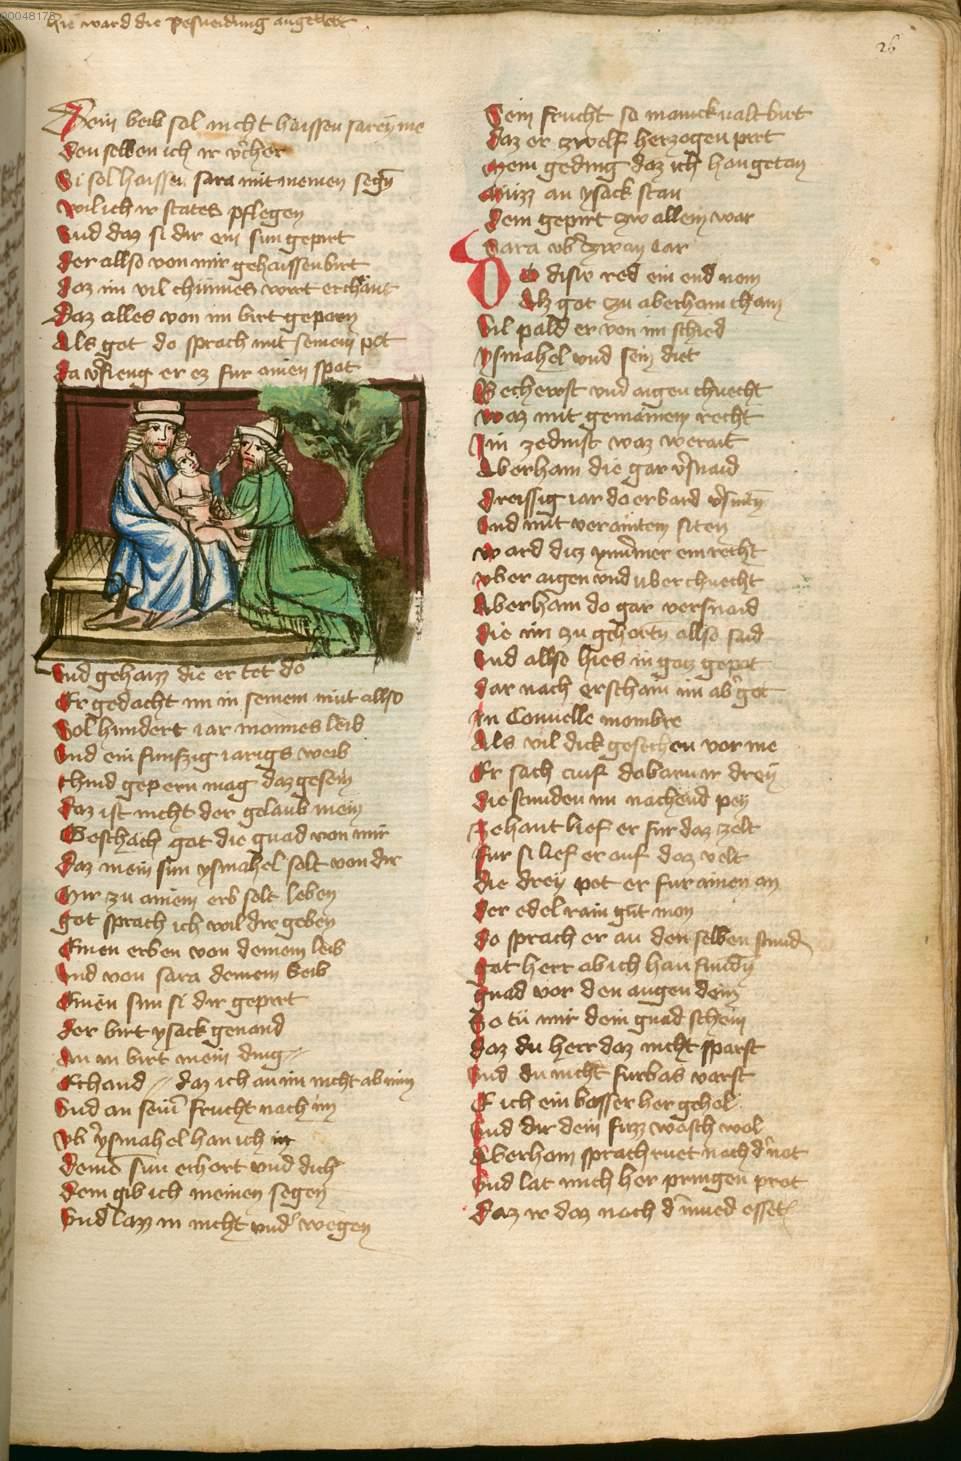 00048175
hie ward die Besneidung angehebt
26
Dein beib sol nicht haissen sarey me
den selben ich ir vercher
Si sol haissen sara mit meinen segen
wil ich ir states pflegen
Vnd daz si dir ein sun gepirt
der allso von mir gehaissen birt
daz im vil chunnes wirt erchant
daz alles von im birt geporn
Als got do sprach mit seinem pot
da vieng er ez fur ainen spot
Vnd gehaizz die er tet do
Er gedacht im in seinem mut allso
Sol hundert iar mannes leib
Vnd ein funfzig iarigs weib
chind gepern mag daz gesein
daz ist nicht der gelaub mein
Geschach got die gnad von mir
daz mein sun ysmahel solt von dir
Mir zu ainem erb solt leben
got sprach ich wil dir geben
Einen erben von deinem leib
Vnd von sara deinem beib
Einen sun si dir gepirt
der birt ysack genand
An im birt mein ding
Erchand daz ich an im nicht ab nim
Vnd an seiner frucht nach im
vber ysmahel han ich
deinen sun erhort vnd dich
dem gib ich meinen segen
Vnd lazz in nicht vnder wegen
Sein frucht so manickualt birt
daz er zwelf herzogen pirt
Mein geding daz ich han getan
Muzz an ysack stan
dem gepirt zw allein war
Sara vber zway iar
Do disw red ein end nom
Alz got zu aberham cham
Vil pald er von im schied
ysmahel vnd sein diet
Becherost vnd aigen chnecht
waz mit gemainem recht
Im ze dinst waz werait
Aberham die gar versnaid
dreissig iar do er bard versniten
Vnd mit verainten siten
ward diz ymmer ein recht
vber aigen vnd uber chnecht
Aberham do gar versnaid
die im zu gehorten allso said
Vnd allso hies in gotz gepot
dar nach erschain im aber got
In Conuelle mambre
Als vil dick geschehen vor me
Er sach auf do barn ir drey
die stunden im nachend pey
Zehant lief er fur daz zelt
fur si lief er auf daz velt
die drey pet er fur ainen an
der edel rain gut man
do sprach er an den selben stund
got herr ab ich han funden
gnad vor den augen dein
So tu mir dein gnad schein
daz du herr daz nicht sparst
Vnd du nicht furbas varst
E ich ein basser her gehol
Vnd dir dein fuzz wasch wol
Aberham sprach ruet nach der not
Vnd lat mich her pringen prot
daz ir daz nach der mued esset